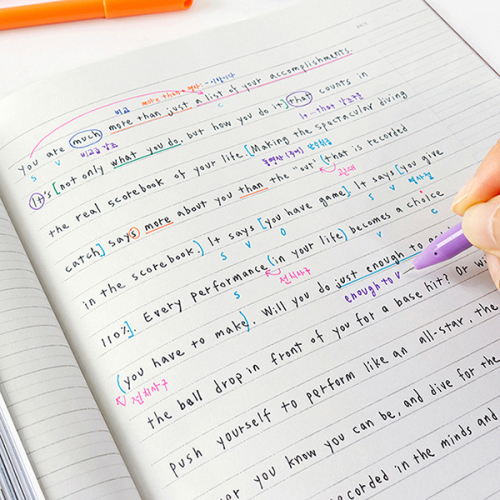 비교 more than a 명사 ~이상이다
you are much more than just a list of your accomplishments.
S V 비교급 강조 C It-that 강조구문
It's [not only what you do, but how you do it] that counts in
동명사 (주어) 단수취급
the real scorebook of your life. [Making the spectacular diving
관대
catch] says more about you than the "out" (that is recorded
S V 명사절
in the scorebook.) It says [you have game]. It says [you give
S V O S V C
110%]. Every performance (in your life) becomes a choice
S 전치사구
(you have to make). Will you do just enough to
전치사구 enough to V
the ball drop in front of you for a base hit? Or
push yourself to perform like an all-star, the
you know you can be, and dive for the
recorded in the minds and